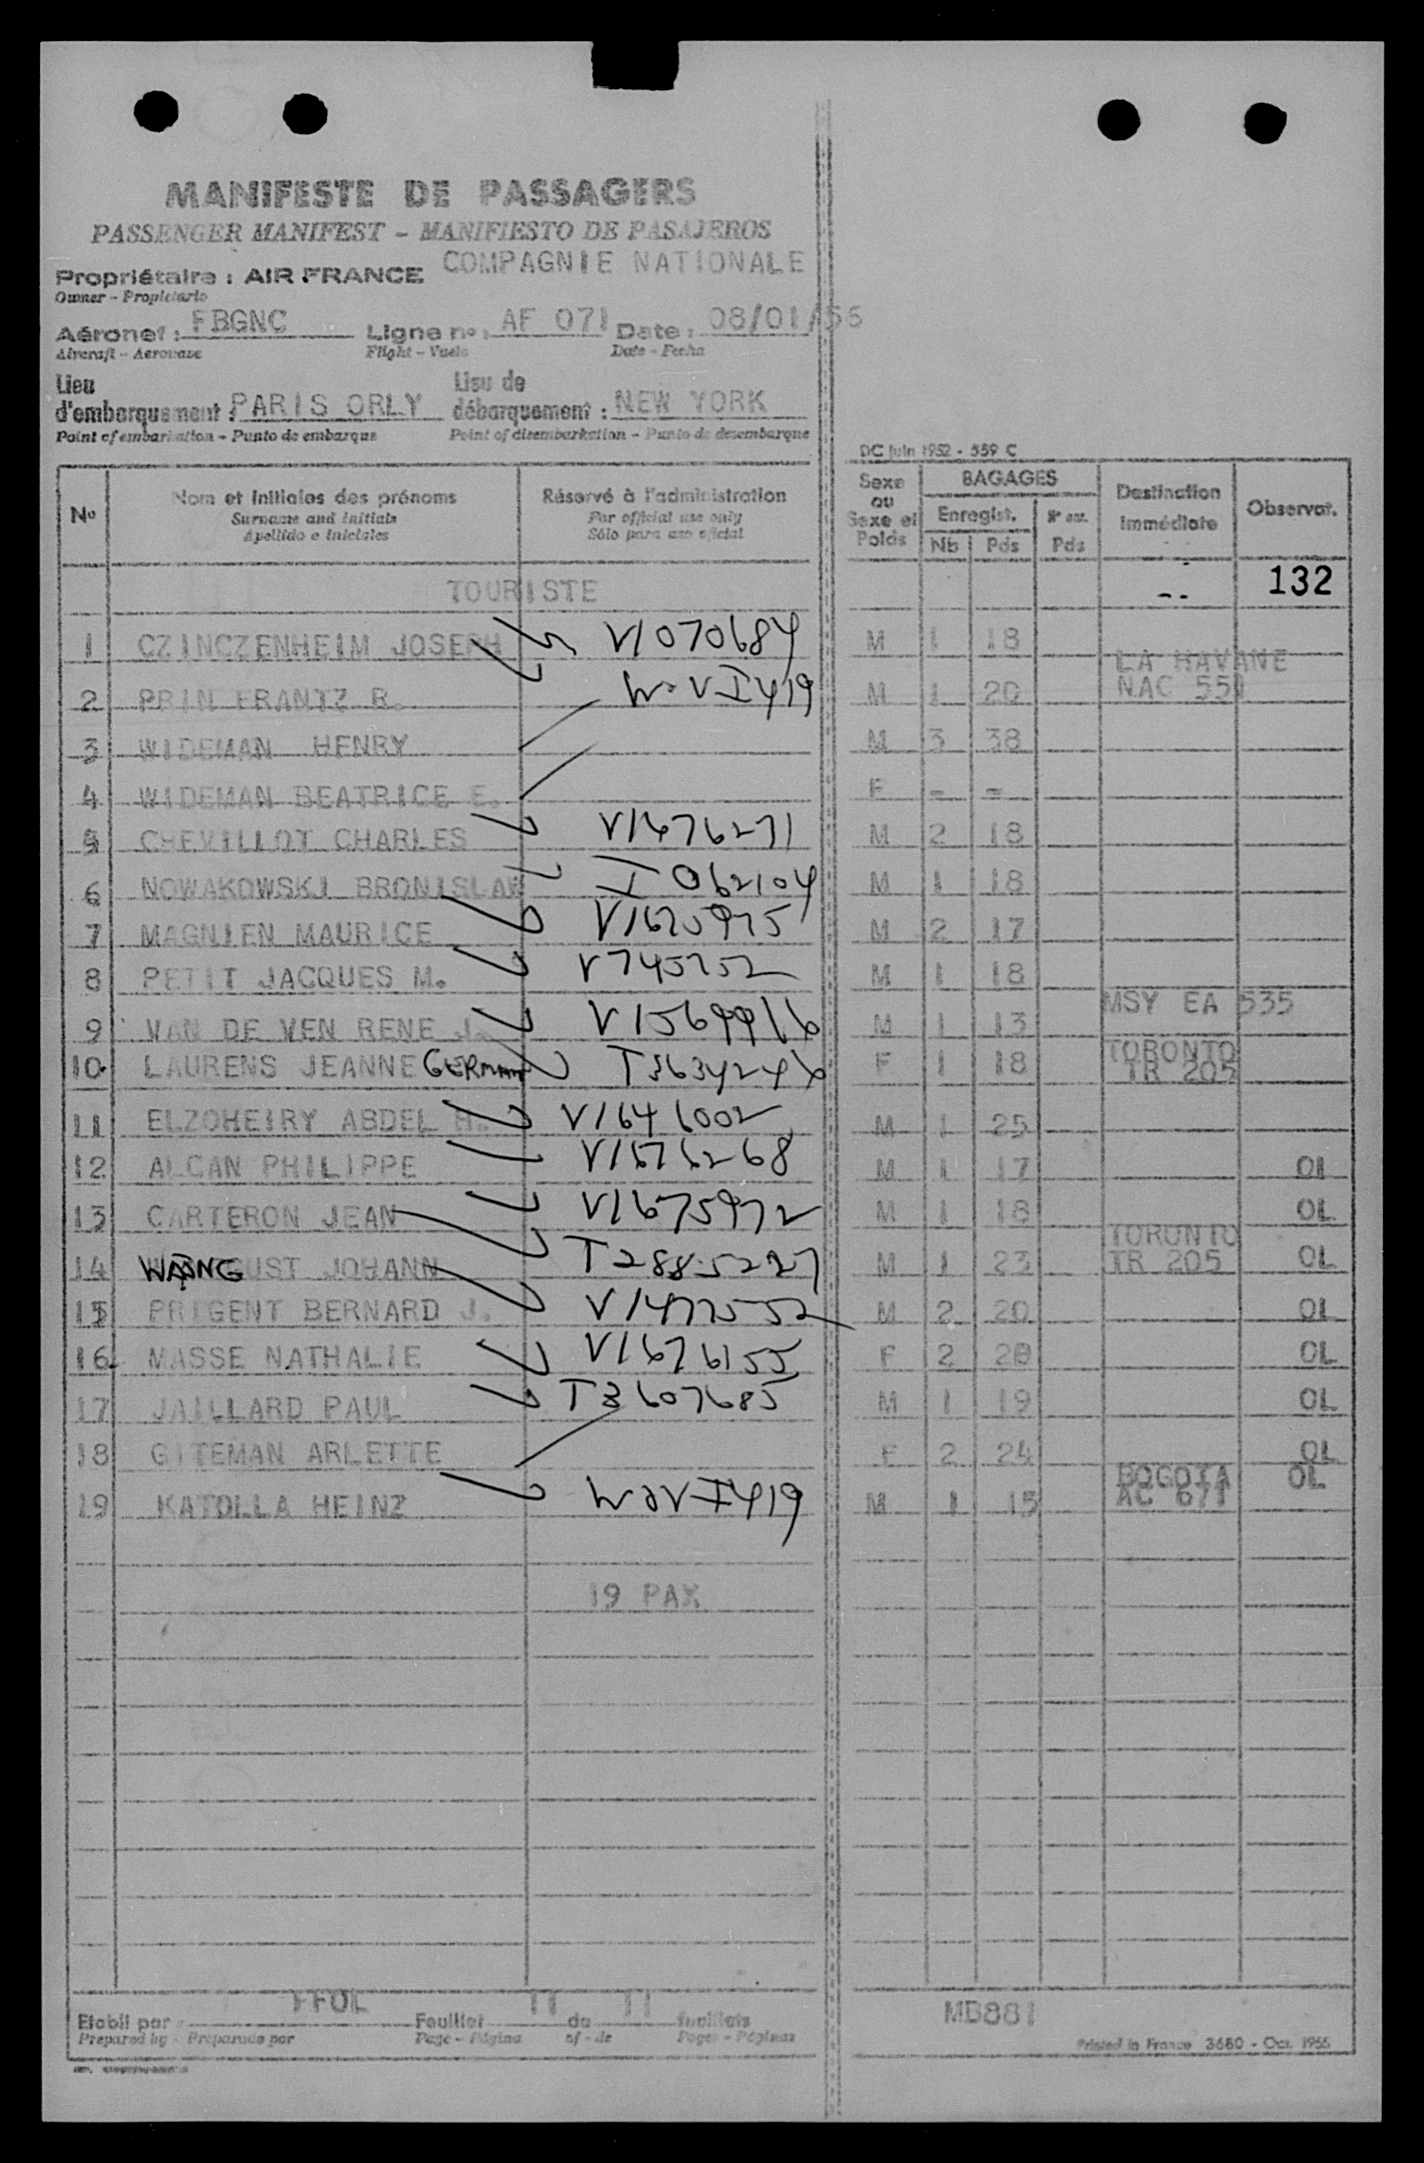 MANIFESTE DE PASSAGERS
PASSENGER MANIFEST - MANIFIESTO DE PASAJEROS
Propriétaire : AIR FRANCE COMPAGNIE NATIONALE
Owner - Propietario
Aéronef : FBGNC Ligne no : AF 071 Date : 08/01/56
Aircraft - Aeronave Flight - Vuelo Date - Fecha
Lieu d'embarquement : PARIS ORLY Lieu de débarquement : NEW YORK
Point of embarkation - Punto de embarque Point of disembarkation - Punto de desembarque
DC Juin 1952 - 559 C
No Nom et initiales des prénoms Réservé à l'administration Sexe ou Sexe et Poids BAGAGES Destination immédiate Observat.
Surname and initials For official use only Enregist. Pds
Apellido e iniciales Sólo para uso oficial Nb Pds
TOURISTE -- 132
1 CZINCZENHEIM JOSEPH V1070684 M 1 18
LA HAVANE
2 PRIN FRANTZ R. I419 M 1 20 NAC 551
3 WIDEMAN HENRY M 3 38
4 WIDEMAN BEATRICE E. F - -
5 CHEVILLOT CHARLES V1676271 M 2 18
6 NOWAKOWSKI BRONISLAW I 062104 M 1 18
7 MAGNIEN MAURICE V1675975 M 2 17
8 PETIT JACQUES M. V745752 M 1 18
MSY EA 535
9 VAN DE VEN RENE J. V1569916 M 1 13
10 LAURENS JEANNE GERMAN T3634246 F 1 18 TORONTO TR 205
11 ELZOHEIRY ABDEL H. V1641002 M 1 25
12 ALCAN PHILIPPE V1676268 M 1 17 OL
13 CARTERON JEAN V1675972 M 1 18 OL
14 UST JOHANN T2885227 M 1 23 TORONTO TR 205 OL
15 PRIGENT BERNARD J. V1472552 M 2 20 OL
16 MASSE NATHALIE V1676155 F 2 20 OL
17 JAILLARD PAUL T3607685 M 1 19 OL
18 GITEMAN ARLETTE F 2 24 OL
19 KATOLLA HEINZ I419 M 1 15 BOGOTA AC 671 OL
19 PAX
Etabli par FFOL Feuillet 11 de 11 feuillets MD881
Prepared by - Preparado por Page - Página of - de Pages - Páginas
Printed in France 3680 - Oct. 1955